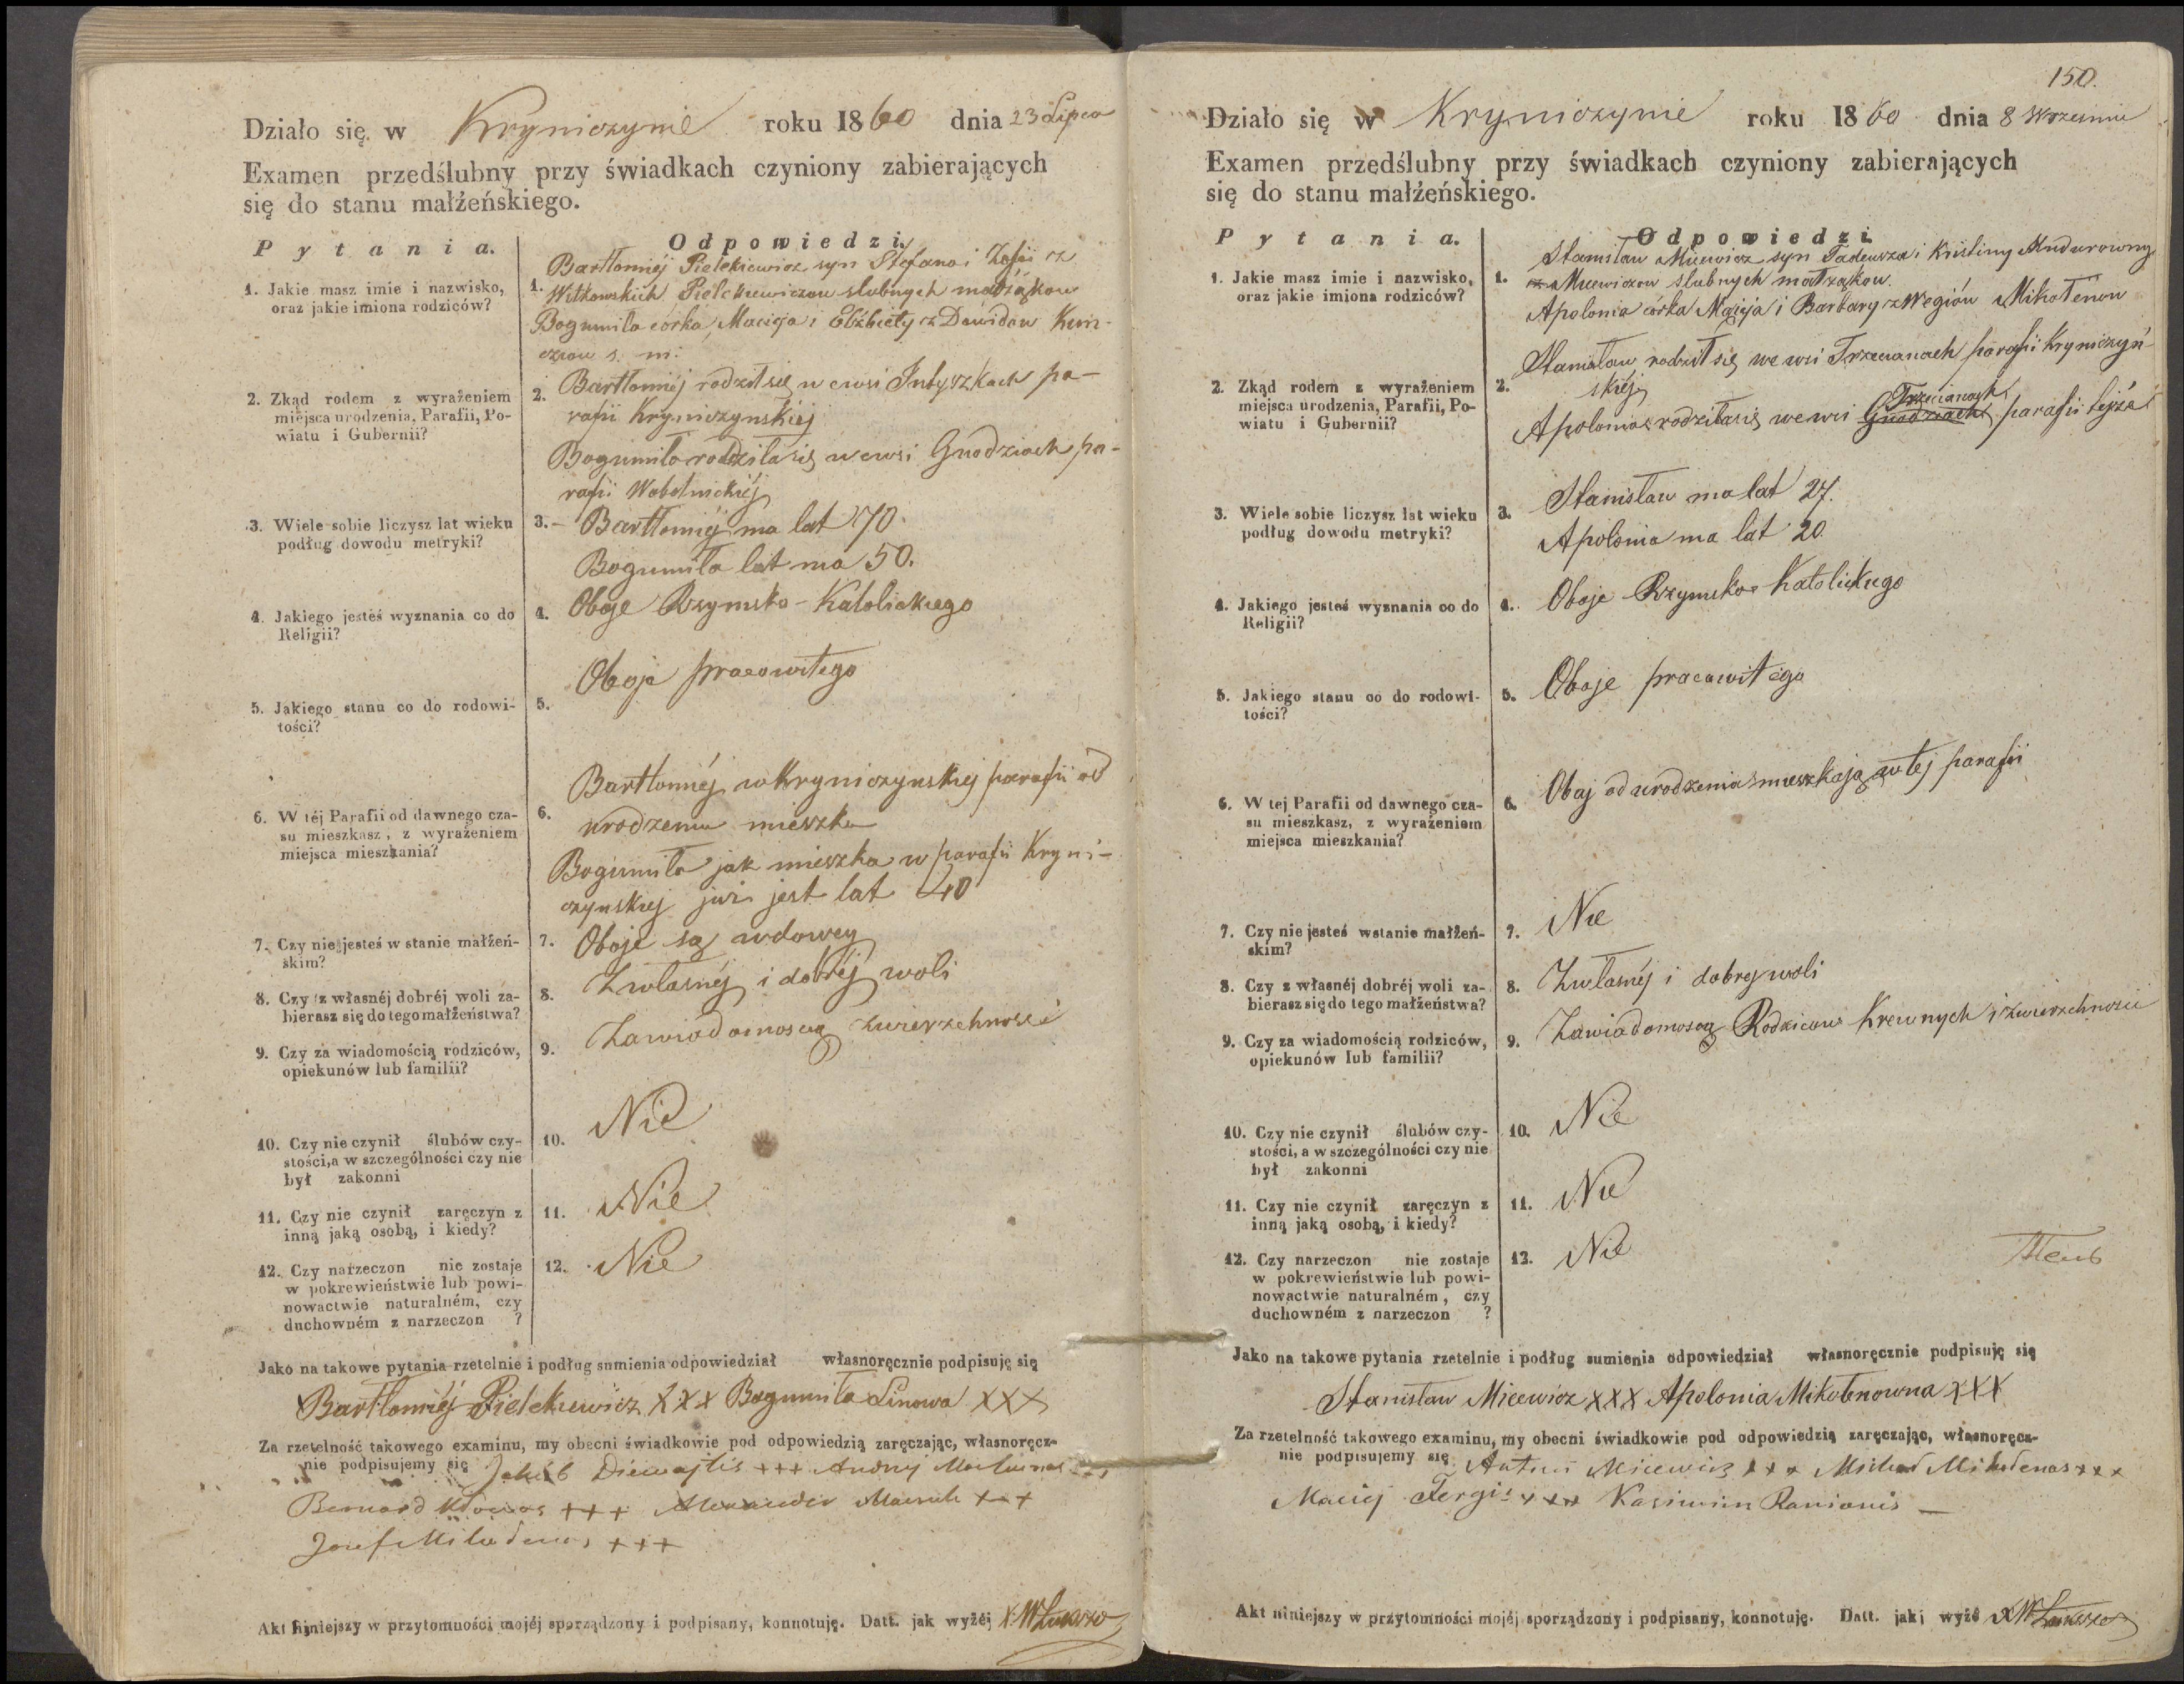 Działo się w Kryniczynie roku 1860 dnia 23 Lipca
Examen przedślubny przy świadkach czyniony zabierających
się do stanu małżeńskiego.
Pytania. Odpowiedzi.
1. Jakie masz imie i nazwisko,
oraz jakie imiona rodziców?
1. Bartłomiéj Pielekiewicz syn Stefana i Zofii z
Witkowskich Pielekiewiczow slubnych małżąkow
Bogumiła córka Macieja i Elżbiety z Dawidow
s. m.
2. Zkąd rodem z wyrażeniem
miejsca urodzenia, Parafii, Po-
wiatu i Gubernii?
2. Bartłomiéj rodził się w ewsi Intyszkach pa-
rafii Kryniczynskiéj
Bogumiła rodziła się w ewsi Gnodziach pa-
rafii Wobolnickiéj
3. Wiele sobie liczysz lat wieku
podług dowodu metryki?
3. - Bartłomiéj ma lat 70.
Bogumiła lat ma 50.
4. Jakiego jesteś wyznania co do
Religii?
4. Oboje Rzymsko-Katolickiego
5. Jakiego stanu co do rodowi-
tości?
5. Oboje pracowitego
6. W téj Parafii od dawnego cza-
su mieszkasz, z wyrażeniem
miejsca mieszkania?
6. Bartłomiéj w Kryniczynskiej parafii od
urodzenia mieszka
Bogumiła jak mieszka w parafii Kryni-
czynskiej już jest lat 40
7. Czy nie jesteś w stanie małżeń-
skim?
7. Oboje są wdowcy
8. Czy z własnéj dobréj woli za-
bierasz się do tego małżeństwa?
8. Zwłasnéj i dobréj woli
9. Czy za wiadomością rodziców,
opiekunów lub familii?
9. Zawiadomoscią zwierzchnosci
10. Czy nie czynił ślubów czy-
stości, a w szczególności czy nie
był zakonni
10. Nie
11. Czy nie czynił zaręczyn z
inną jaką osobą, i kiedy?
11. Nie
12. Czy narzeczon nie zostaje
w pokrewieństwie lub powi-
nowactwie naturalném, czy
duchowném z narzeczon ?
12. Nie
Jako na takowe pytania rzetelnie i podług sumienia odpowiedział własnoręcznie podpisuję się
Bartłomiéj Pielekiewicz XXX Bogumiła Linowa XXX
Za rzetelność takowego examinu, my obecni świadkowie pod odpowiedzią zaręczając, własnoręcz-
nie podpisujemy się Jakób +++ Andrzej
Bernard +++ Alexander +++
Jozef Mikołenas +++
Akt niniejszy w przytomności mojéj sporządzony i podpisany, konnotuję. Datt. jak wyżéj
150.
Działo się w Kryniczynie roku 1860 dnia 8 Wrzesnia
Examen przedślubny przy świadkach czyniony zabierających
się do stanu małżeńskiego.
Pytania. Odpowiedzi.
1. Jakie masz imie i nazwisko,
oraz jakie imiona rodziców?
1. Stanisław Micewicz syn Tadeusza i Kristiny
z Micewiczow slubnych małżąkow.
Apolonia córka Macieja i Barbary z Mikołenow
2. Zkąd rodem z wyrażeniem
miejsca urodzenia, Parafii, Po-
wiatu i Gubernii?
2. Stanisław rodził się we wsi Trzecianach parafii Kryniczyń-
skiéj
Trzecianach
Apolonia rodziła się we wsi Gnodziach parafii tejże
3. Wiele sobie liczysz lat wieku
podług dowodu metryki?
3. Stanisław ma lat 27.
Apolonia ma lat 20.
4. Jakiego jesteś wyznania co do
Religii?
4. Oboje Rzymsko Katolickiego
5. Jakiego stanu co do rodowi-
tości?
5. Oboje pracowitego
6. W tej Parafii od dawnego cza-
su mieszkasz, z wyrażeniem
miejsca mieszkania?
6. Obaj od urodzenia mieszkają w tej parafii
7. Czy nie jesteś wstanie małżeń-
skim?
7. Nie
8. Czy z własnéj dobréj woli za-
bierasz się do tego małżeństwa?
8. Zwłasnéj i dobrej woli
9. Czy za wiadomością rodziców,
opiekunów lub familii?
9. Zawiadomoscią Rodzicow Krewnych i zwierzchnosci
10. Czy nie czynił ślubów czy-
stości, a w szczególności czy nie
był zakonni
10. Nie
11. Czy nie czynił zaręczyn z
inną jaką osobą, i kiedy?
11. Nie
12. Czy narzeczon nie zostaje
w pokrewieństwie lub powi-
nowactwie naturalném, czy
duchowném z narzeczon ?
12. Nie
Jako na takowe pytania rzetelnie i podług sumienia odpowiedział własnoręcznie podpisuję się
Stanisław Micewicz XXX Apolonia Mikołenowna XXX
Za rzetelność takowego examinu, my obecni świadkowie pod odpowiedzią zaręczając, własnoręcz-
nie podpisujemy się Antoni Micewicz +++ Michał Mikołenas +++
Maciej Fergis +++ Kazimierz Ramionis
Akt niniejszy w przytomności mojéj sporządzony i podpisany, konnotuję. Datt. jak wyżé